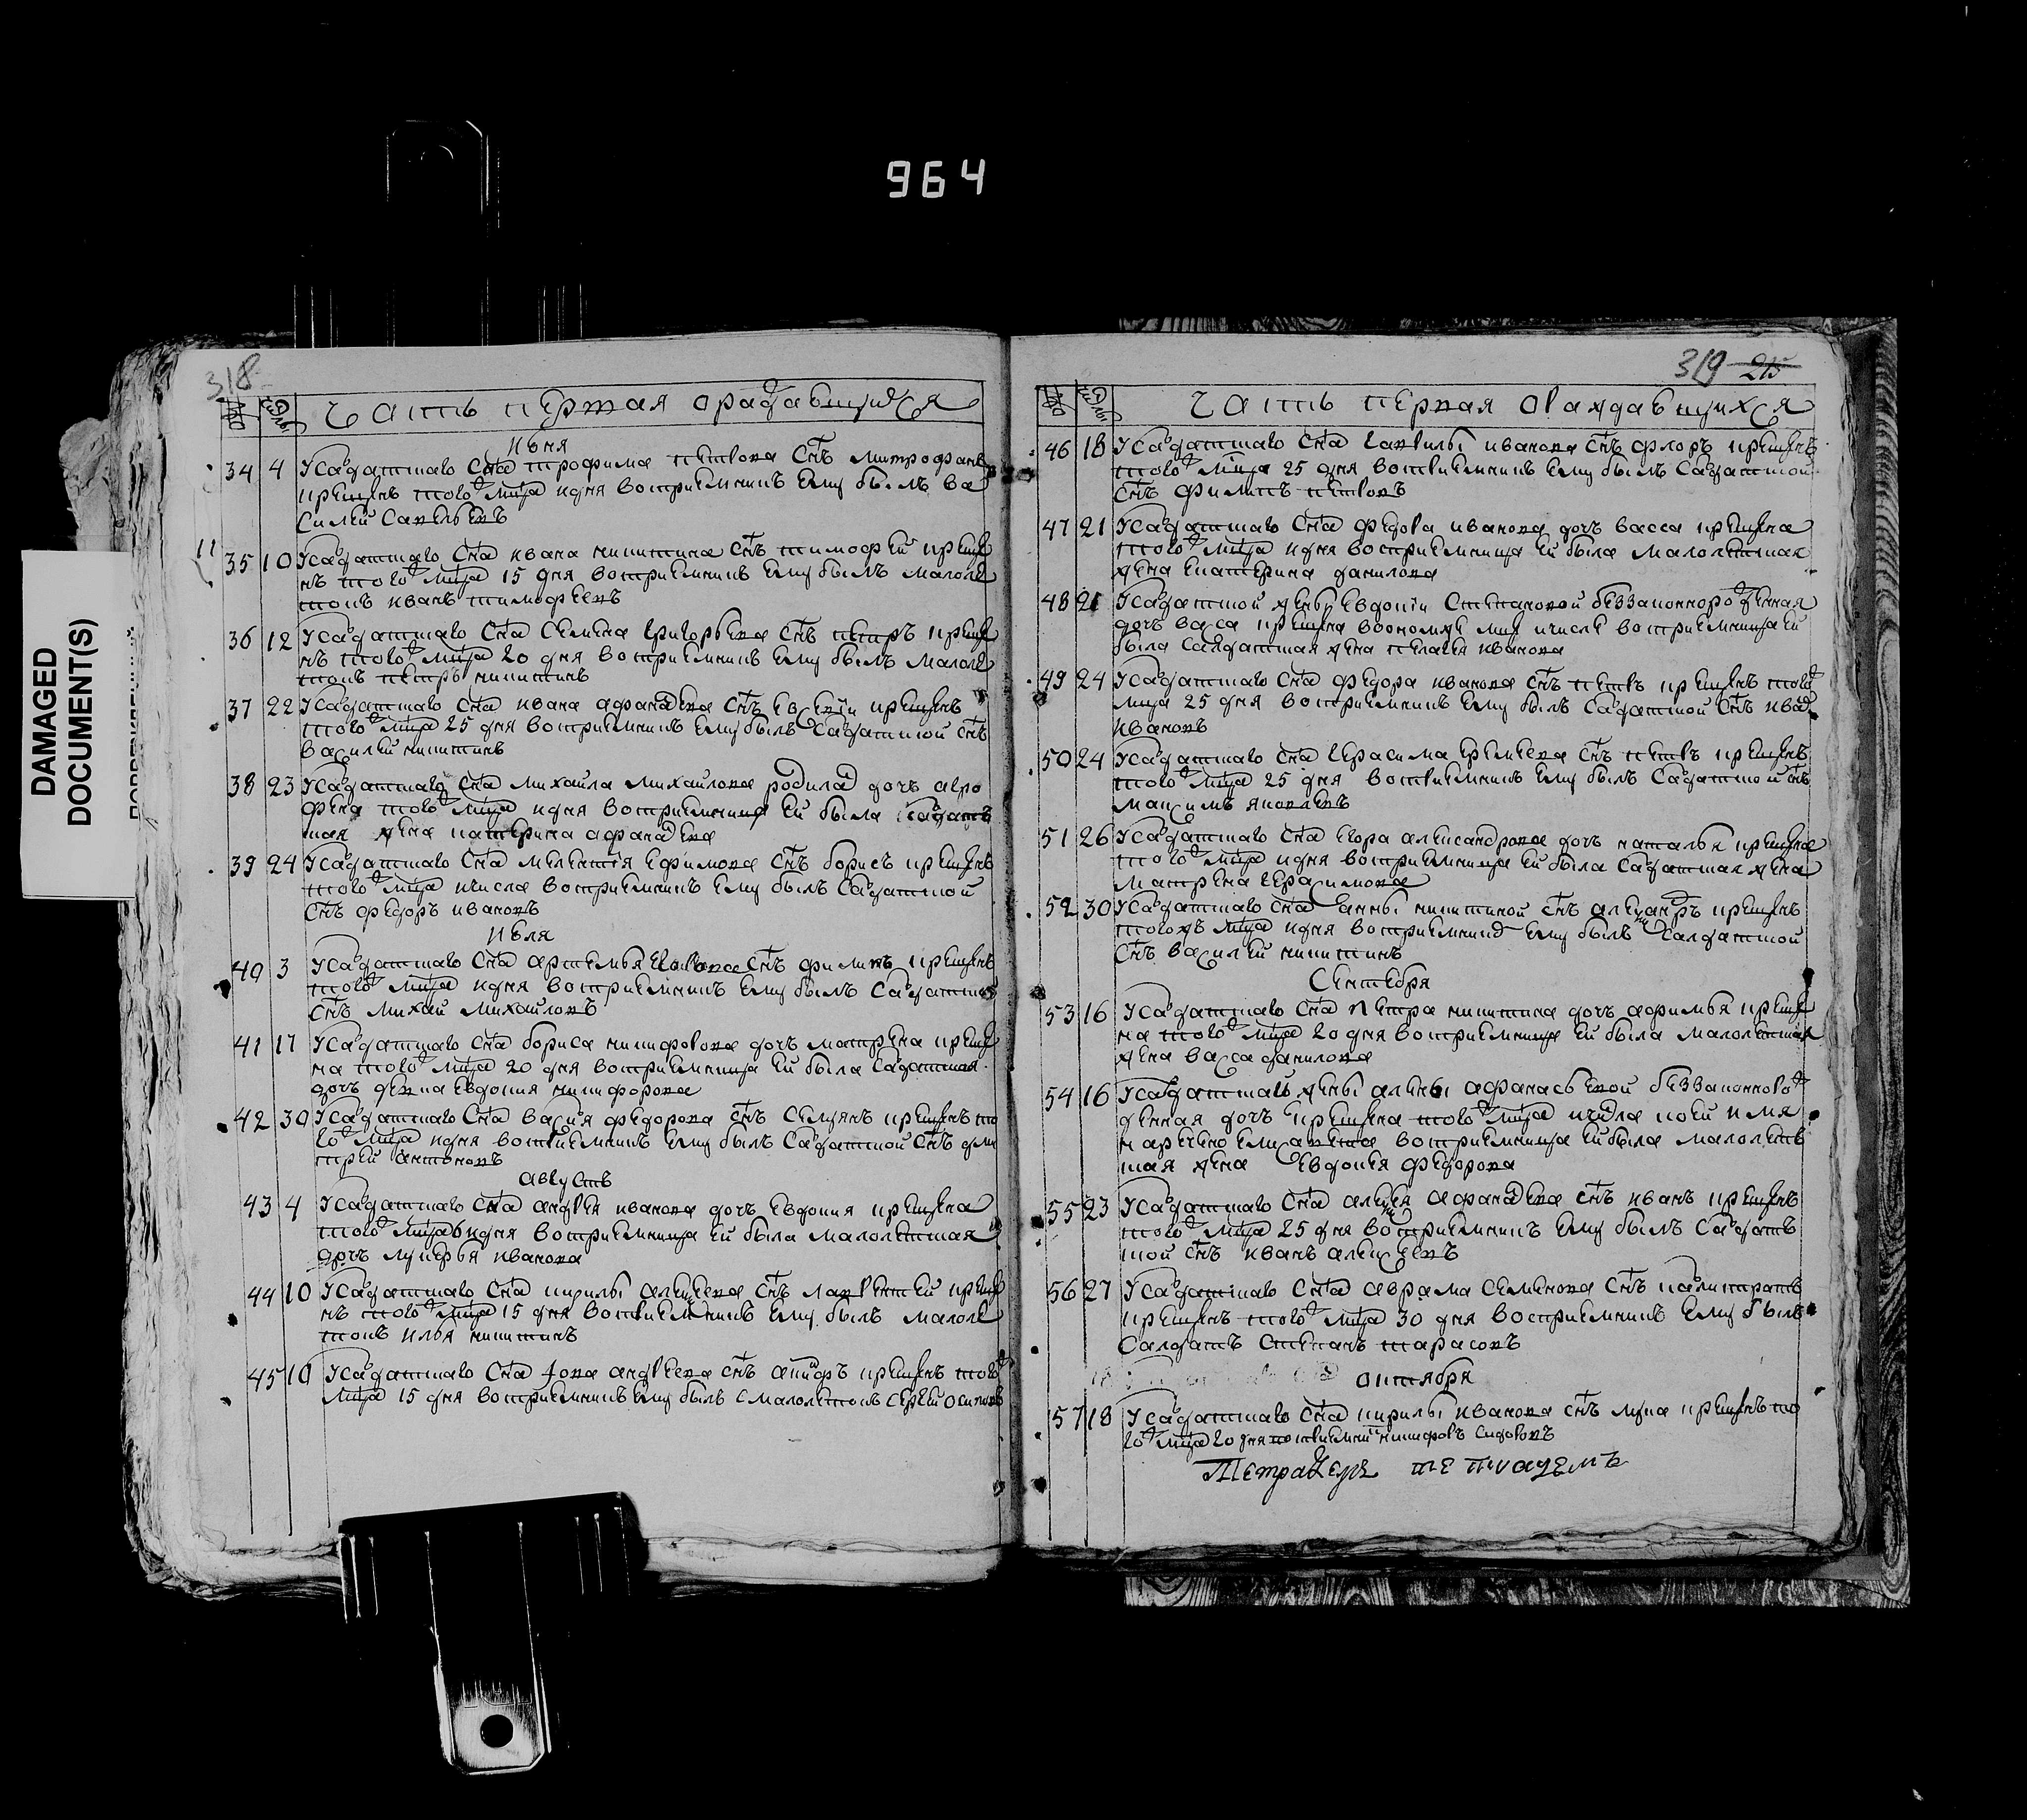 964
DAMAGED
DOCUMENT(S)
318
часть первая ораждавшихся
июня
34 4 У салдатского сна трофима петрова снъ митрофанъ
крещенъ того ж мца и дня восприемникъ ему былъ ва
силей савельевъ
35 10 У салдатского сна ивана никитина снъ тимофей креще
нъ того ж мца 15 дня восприемникъ ему былъ малоле
токъ иванъ тимофеевъ
36 12 У салдатского сна семена григорьева снъ петръ креще
нъ того ж мца 20 дня восприемникъ ему былъ малоле
токъ петръ никитинъ
37 22 У салдатского сна ивана афанасева снъ евсевии крещенъ
того ж мца 25 дня восприемникъ ему былъ салдатской снъ
василей никитинъ
38 23 У салдатского сна михаила михаилова родилас дочь агро
фена того ж мца и дня восприемница ей была салдатъ
ская жена катерина афанасева
39 24 У салдатского сна мелентья ефимова снъ борисъ крещенъ
того ж мца и числа восприемникъ ему былъ салдатской
снъ федоръ ивановъ
июля
40 3 У салдатского сна артемья снъ филипъ крещенъ
того ж мца и дня восприемникъ ему былъ салдатской
снъ михаи михайловъ
41 17 У салдатского сна бориса никифорова дочь матрена креще
на того ж мца 20 дня восприемница ей была салдатская
дочь девка евдокия никифорова
42 30 У салдатского сна васия федорова снъ семионъ крещенъ то
го ж мца и дня восприемникъ ему былъ салдатской снъ дми
трей антоновъ
августъ
43 4 У салдатского сна андрея иванова дочь евдокия крещена
того ж мца 6 дня восприемница ей была малолетская
дочь лукерья иванова
44 10 У салдатского сна кирилы алексеева снъ лаврентей креще
нъ того ж мца 15 дня восприемникъ ему былъ малоле
токъ илья никитинъ
45 10 У салдатского сна андреева снъ крещенъ того ж
мца 15 дня восприемникъ ему былъ малолетокъ сергей осиповъ
319 25
часть первая ораждавшихся
46 18 У салдатского сна гаврилы иванова снъ флоръ крещенъ
того ж мца 25 дня восприемникъ ему былъ салдатской
снъ филипъ петровъ
47 21 У салдатского сна федора иванова дочь васса крещена
того ж мца и дня восприемница ей была малолетская
жена екатерина данилова
48 21 У салдатской жены евдокии степановой беззаконнорожденая
дочь васа крещена воономже мце и числе восприемница ей
была салдатская жена пелагея иванова
49 24 У салдатского сна федора иванова снъ петръ крещенъ того ж
мца 25 дня восприемникъ ему былъ салдатской снъ иван
ивановъ
50 24 У салдатского сна герасима еремеева снъ петръ крещенъ
того ж мца 25 дня восприемникъ ему былъ салдатской снъ
максимъ яковлевъ
51 26 У салдатского сна егора александрова дочь наталья крещена
того ж мца и дня восприемница ей была салдатская жена
матрена герасимова
52 30 У салдатского сна анны никитиной снъ александръ крещенъ
тогожъ мца и дня восприемникъ ему былъ салдатской
снъ василей никитинъ
сентебря
53 16 У салдатского сна петра никитина дочь афимья креще
на того ж мца 20 дня восприемница ей была малолетская
жена васса данилова
54 16 У салдатской жены алены афанасьевой беззаконнорож
денная дочь крещена того ж мца и числа коей имя
наречено елисавета восприемница ей была малолетъ
ская жена евдокея федорова
55 23 У салдатского сна алексея афанасева снъ иванъ крещенъ
того ж мца 25 дня восприемникъ ему былъ салдатъ
ской снъ иванъ алексеевъ
56 27 У салдатского сна аврама семенова снъ калистратъ
крещенъ того ж мца 30 дня восприемникъ ему былъ
салдатъ степанъ тарасовъ
октября
57 18 У салдатского сна кирилы иванова снъ лука крещенъ то
го ж мца 20 дня восприемникъ никифоръ сидоровъ